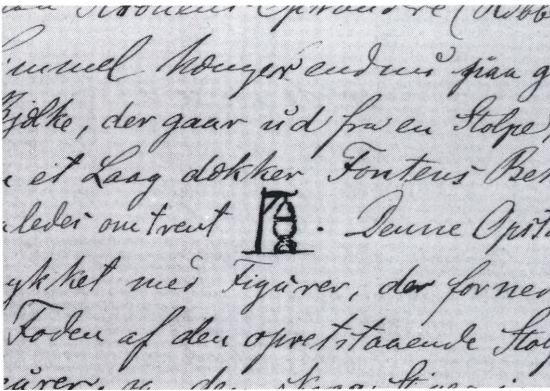 Kroneus-Opstandere (Robb
immel hænger endnu paa g
Bjælke, der gaar ud fra en Stolpe,
et Laag dækker Fontens Bek
aledes omtrent . Denne Opsta
ykket med Figurer, der forned
Foden af den opretstaaende Stol
gurer, og den